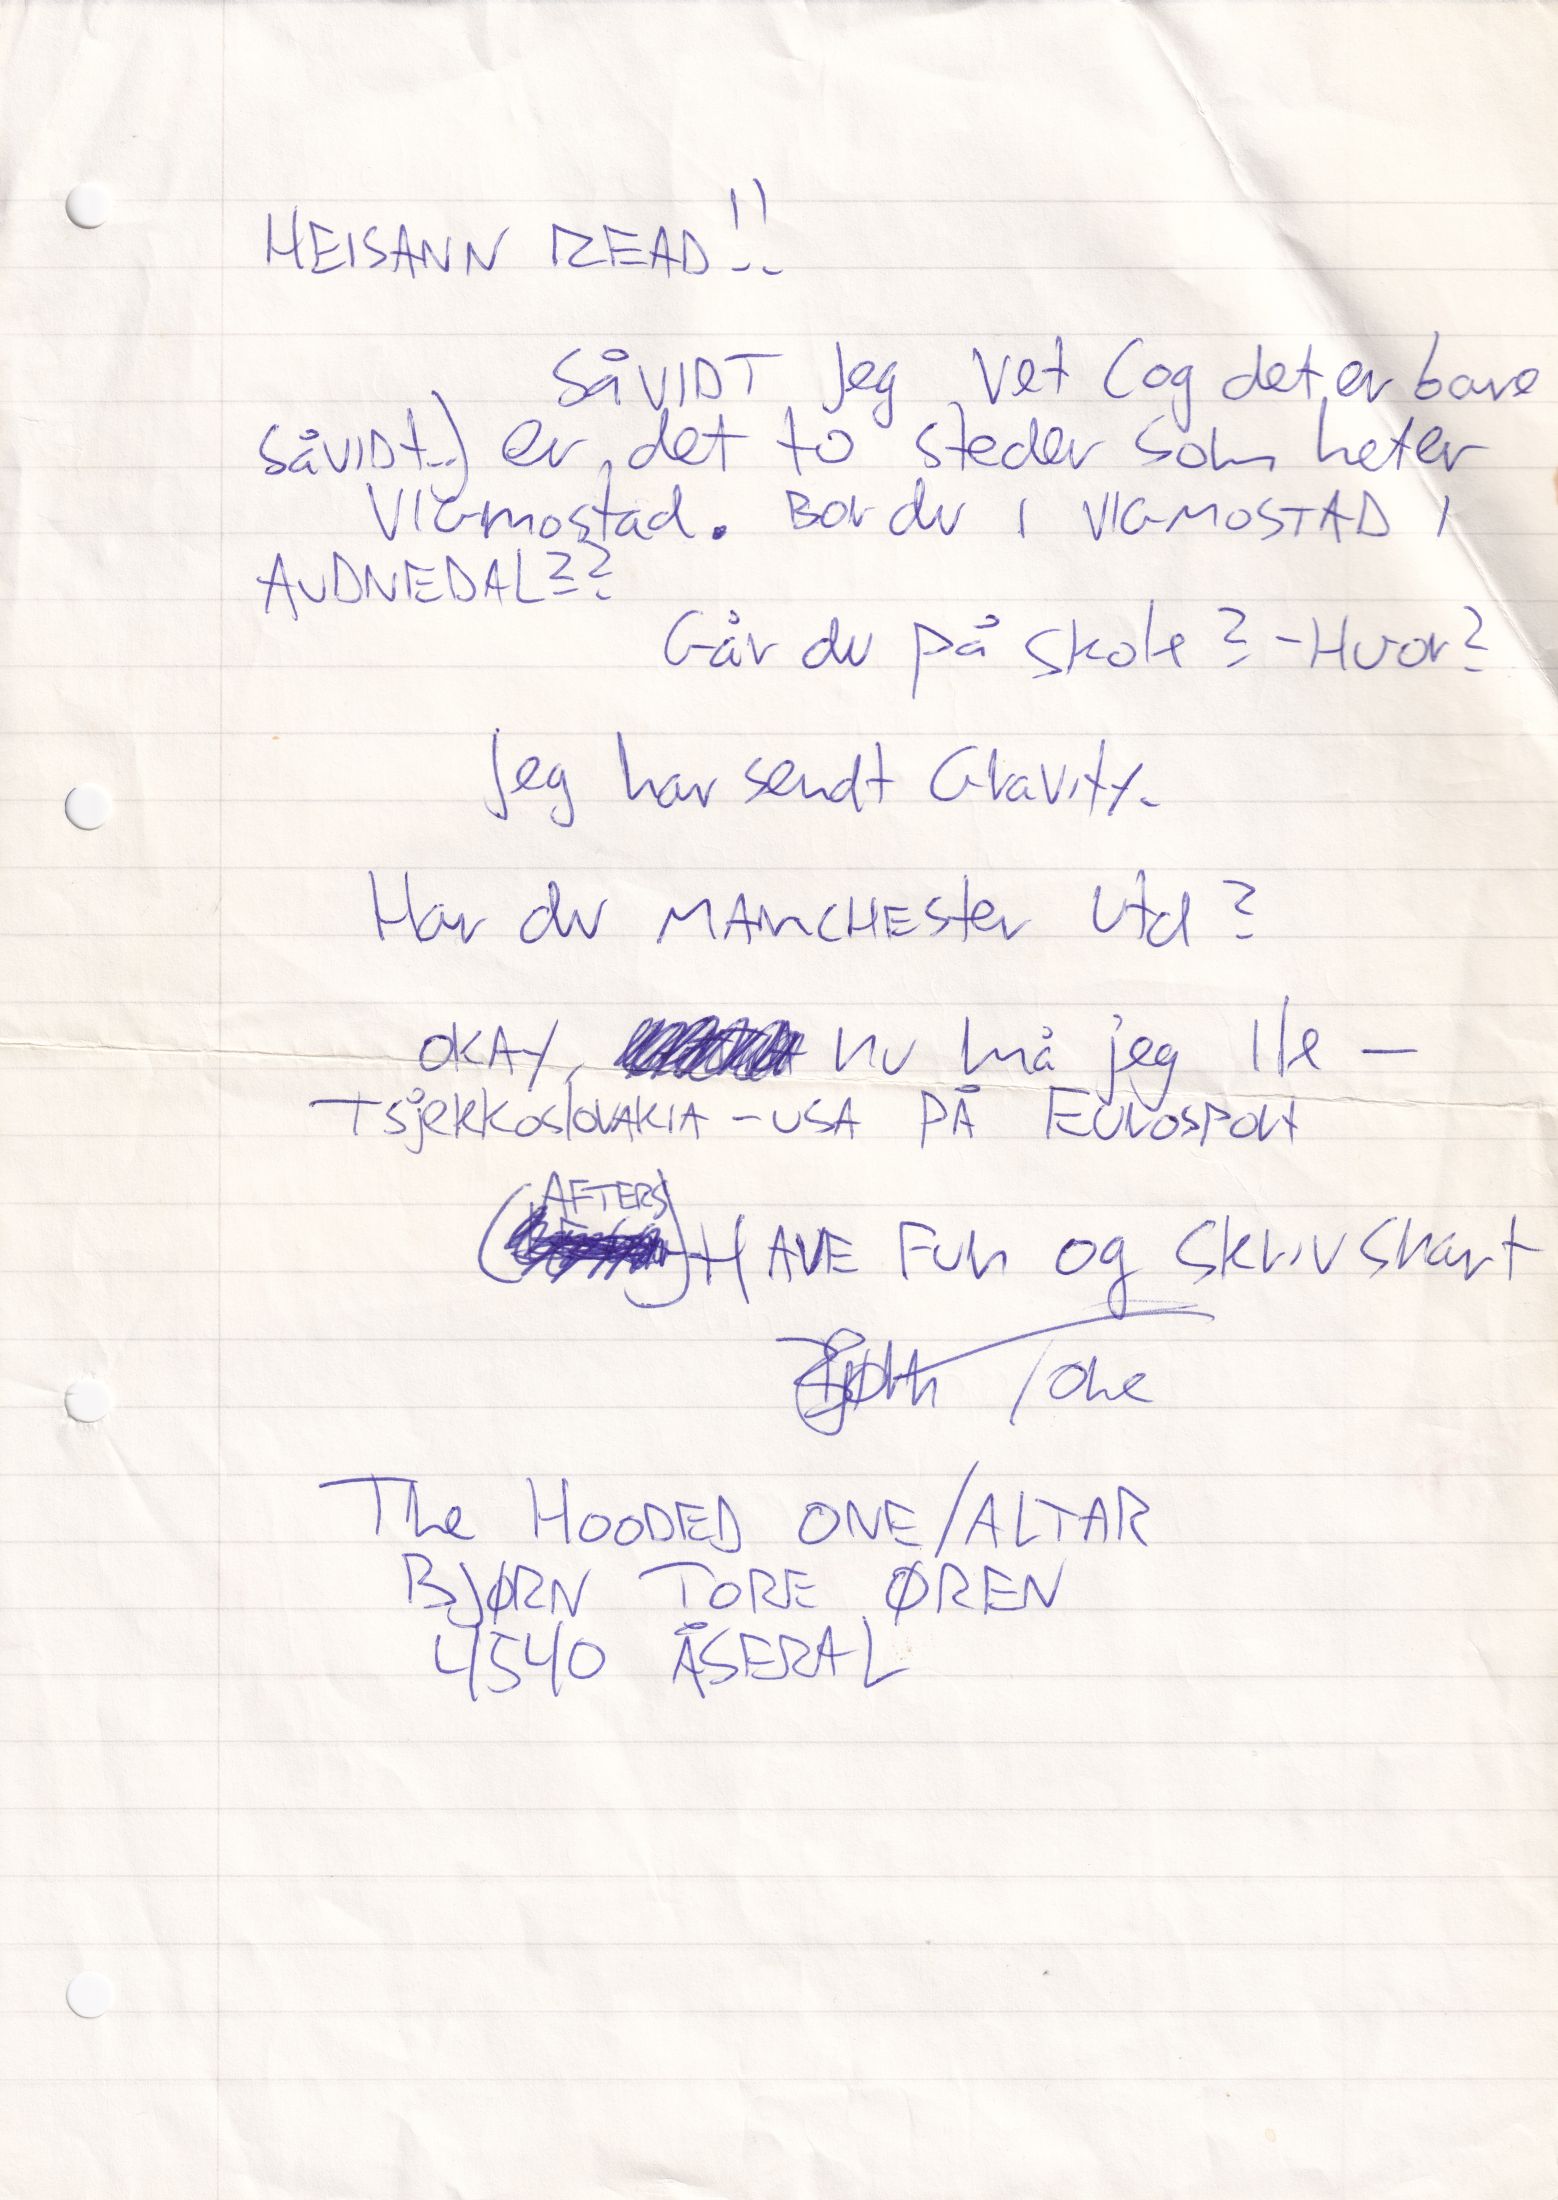 HEISANN READ!!
SåVIDT jeg vet (og det er bare
såVIDt..) er det to steder som heter
VIGmostad. BOR du I VIGMOSTAD I
AUDNEDAL??
Går du på skole? - Hvor?
Jeg har sendt Gravity.
Har du MANCHESter Utd?
OKAY, nu må jeg Ile -
TsjekkoslovAKIA - USA PÅ EUROSPORt
(AFTERS) HAVE FUN og SkrIV snart
Bjørn Tore
The HOODED ONE/ALTAR
BJØRN TORE ØREN
4540 ÅSERAL